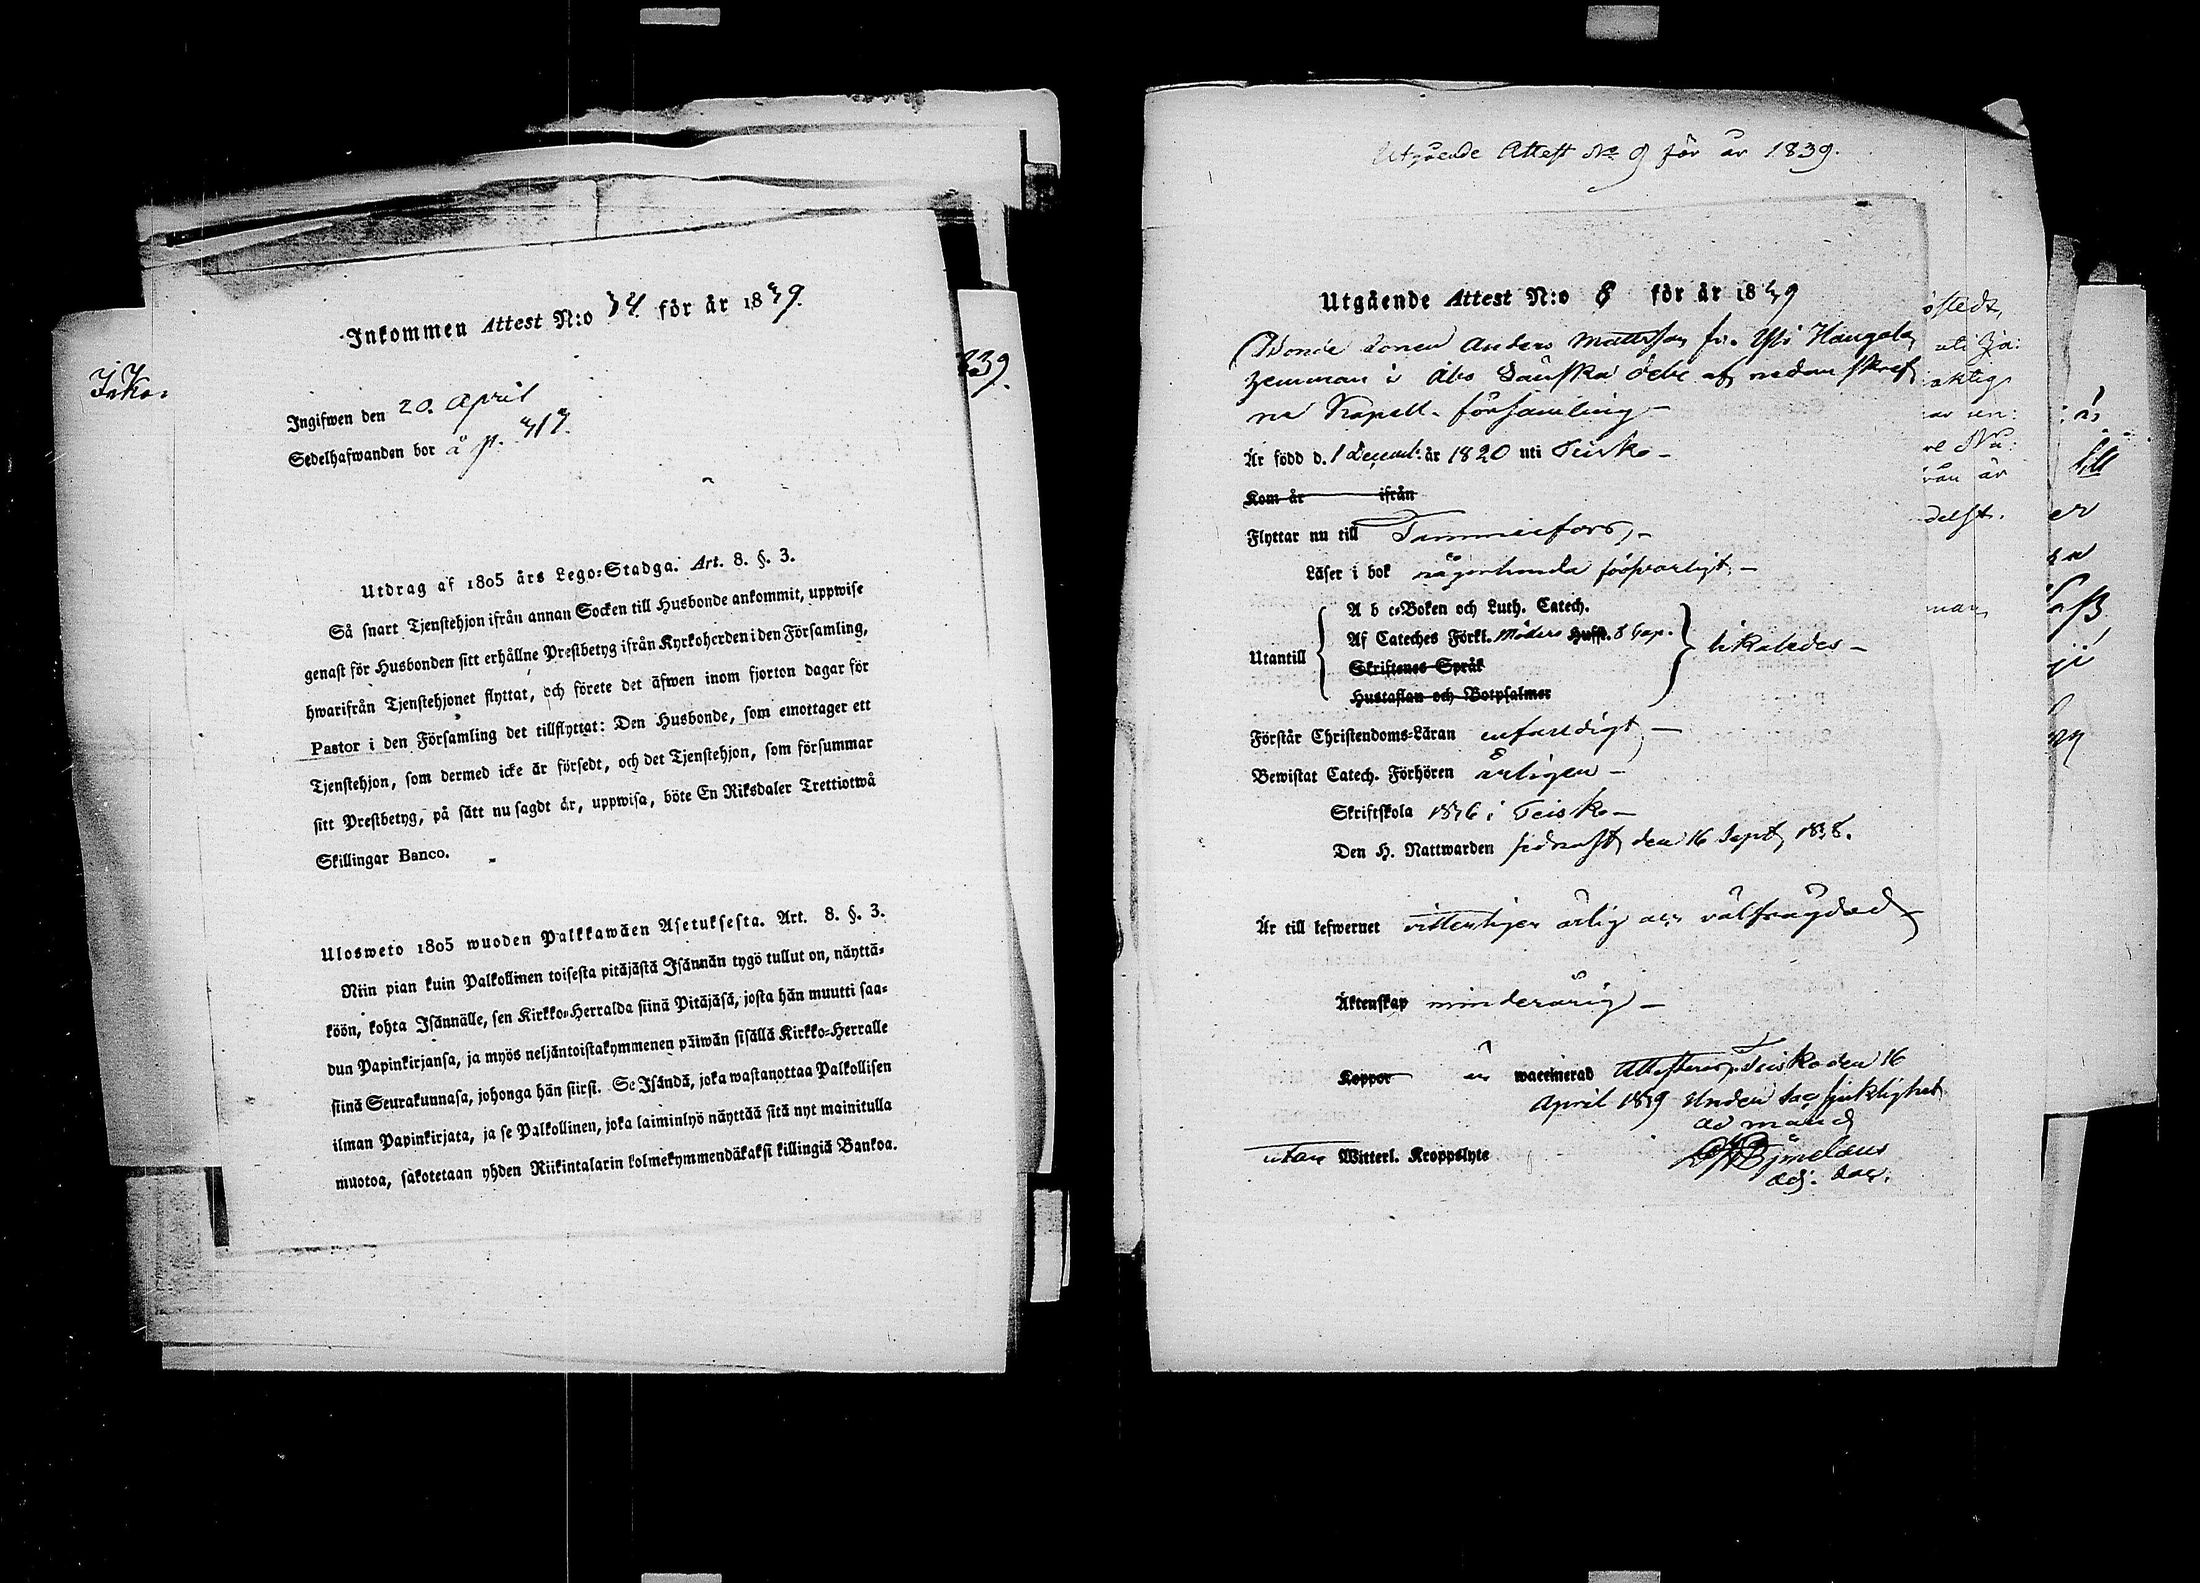 Inkommen Attest N:o 34 för år 1839.
Ingifwen den 20. April
Sedelhafwanden bor å p. 317.
Utdrag af 1805 års Lego-Stadga. Art. 8. §. 3.
Så snart Tjenstehjon ifrån annan Socken till Husbonde ankommit, uppwise
genast för Husbonden sitt erhållne Prestbetyg ifrån Kyrkoherden i den Församling,
hwarifrån Tjenstehjonet flyttat, och förete det äfwen inom fjorton dagar för
Pastor i den Församling det tillflyttat: Den Husbonde, som emottager ett
Tjenstehjon, som dermed icke är försedt, och det Tjenstehjon, som försummar
sitt Prestbetyg, på sätt nu sagdt är, uppwisa, böte En Riksdaler Trettiotwå
Skillingar Banco.
Ulosweto 1805 wuoden Palkkawäen Asetuksesta. Art. 8. §. 3.
Niin pian kuin Palkollinen toisesta pitäjästä Isännän tygö tullut on, näyttä-
köön, kohta Isännälle, sen Kirkko-Herralda siinä Pitäjäsä, josta hän muutti saa-
dun Papinkirjansa, ja myös neljäntoistakymmenen päiwän sisällä Kirkko-Herralle
siinä Seurakunnasa, johonga hän siirsi. Se Isändä, joka wastanottaa Palkollisen
ilman Papinkirjata, ja se Palkollinen, joka laiminlyö näyttää sitä nyt mainitulla
muotoa, sakotetaan yhden Riikintalarin kolmekymmendäkaksi killingiä Bankoa.
Utgående Attest No 9 för år 1839.
Utgående Attest N:o 8 för år 1839
Bonde sonen Anders Mattsson fr. Yli
i Åbo af nedan skref
ne Kapell-församling
Är född d. 1 Decemb: år 1820 uti Teisko
Kom år ifrån
Flyttar nu till Tammerfors,
Läser i bok någorlunda försvarligt
A b c-Boken och Luth. Catech.
Af Cateches Förkl. Möders Hufst. 8 Cap.
Utantill likaledes
Skriftenes Språk
Hustaflan och Botpsalmer
Förstår Christendoms-Läran enfaldigt
Bewistat Catech. Förhören årligen
Skriftskola 1836 i Teisko
Den H. Nattwarden sednast den 16 Sept 1838.
Är till lefwernet vitterligen ärlig och välfrägdad
Äktenskap minderårig
Koppor är waccinerad Attesterar, Teisko den 16
April 1839 Under Sac
ad mand
utan Witterl. Kroppslyte
Adj. Sac.